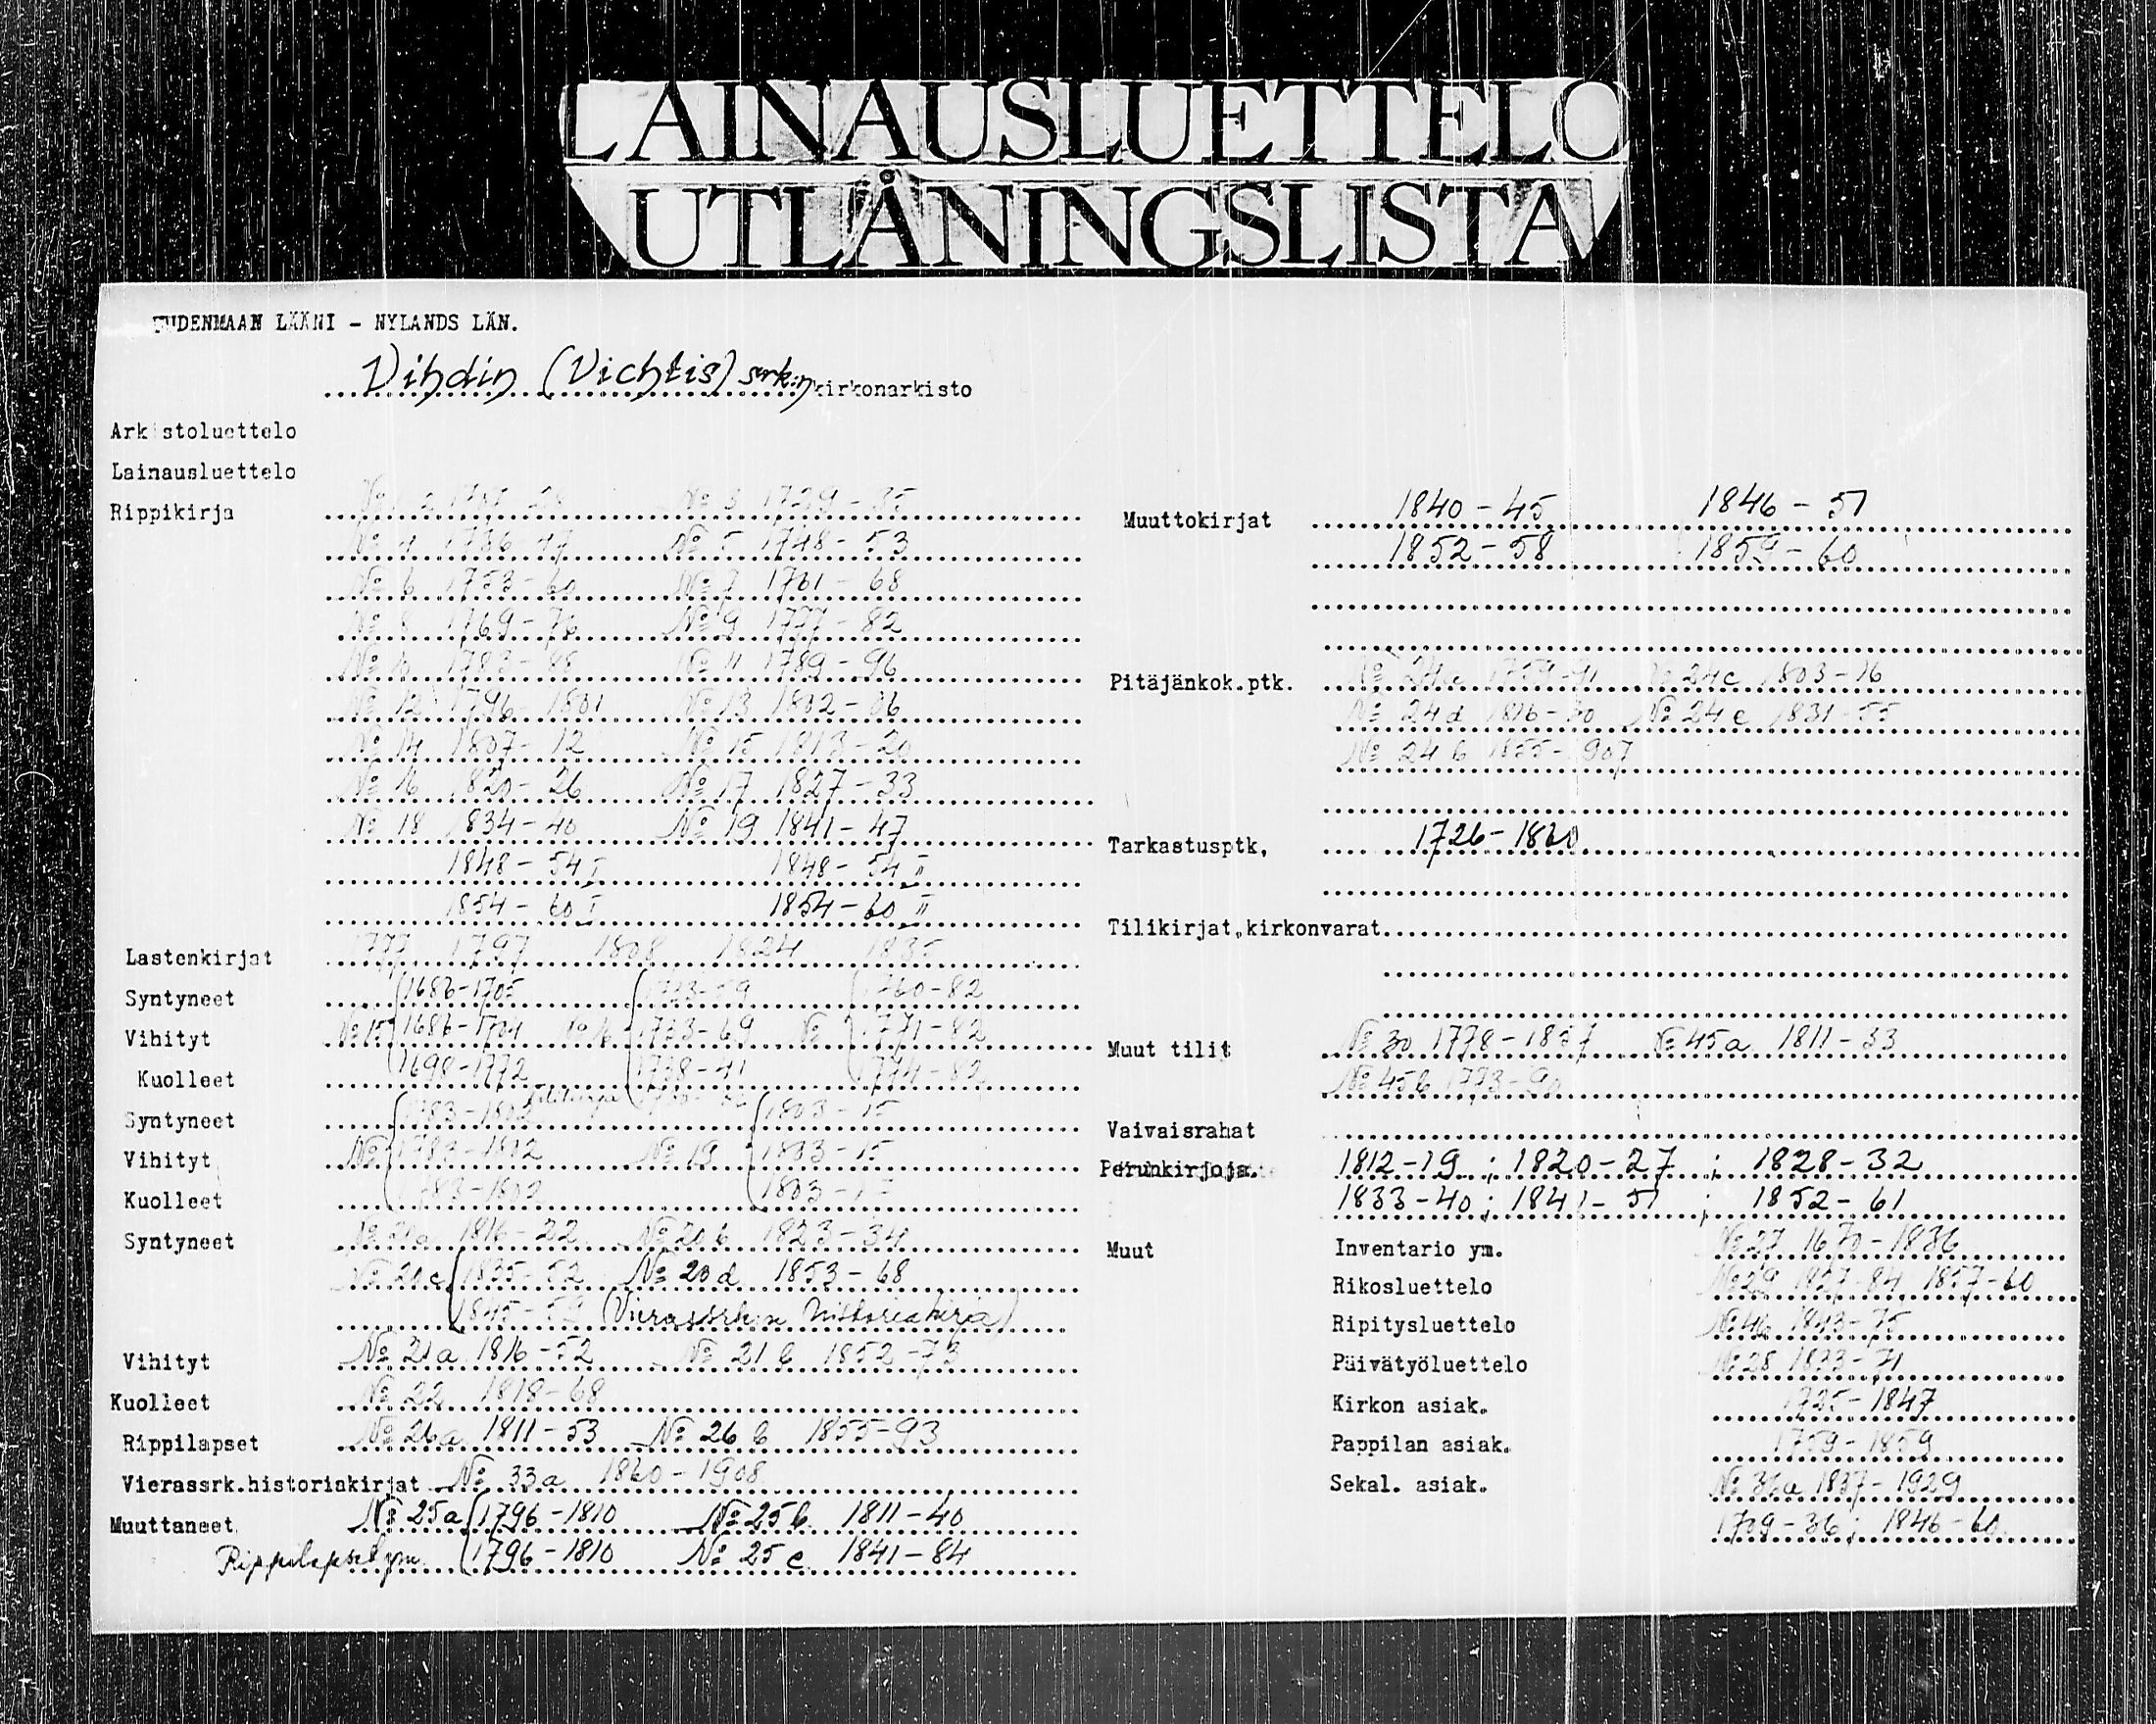 LAINAUSLUETTELO
UTLÅNINGSLISTA
UUDENMAAN LÄÄNI - NYLANDS LÄN.
Vihdin (Vichtis) srk:n kirkonarkisto
Arkistoluettelo
Lainausluettelo
Rippikirja № 3 1729-35
№ 4 1736-47 № 5 1748-53
№ 6 1753-60 № 7 1761-68
№ 8 1769-76 № 9 1777-82
№ 10 1783-88 № 11 1789-96
№ 12 1796-1801 № 13 1802-06
№ 14 1807-12 № 15 1813-20
№ 16 1820-26 № 17 1827-33
№ 18 1834-40 № 19 1841-47
1848-54 I 1848-54 II
1854-60 I 1854-60 II
Lastenkirjat 1777 1797 1808 1824 1835
Syntyneet 1686-1705 1733-59 1760-82
Vihityt 1686-1704 1733-69 № 1771-82
Kuolleet 1698-1772 1738-41 1774-82
Syntyneet 1783-1802 1803-15
Vihityt № 1783-1802 № 19 1803-15
Kuolleet 1783-1802 1803-15
Syntyneet № 20a 1816-22 № 20b 1823-34
№ 20c 1835-52 № 20d 1853-68
1845-59 (Vierassrk:n historiakirja)
Vihityt № 21a 1816-52 № 21b 1852-73
Kuolleet № 22 1818-68
Rippilapset № 26a 1811-53 № 26b 1855-93
Vierassrk.historiakirjat № 33a 1860-1908
Muuttaneet № 25a 1796-1810 № 25b 1811-40
Rippilapset ym. 1796-1810 № 25c 1841-84
Muuttokirjat 1840-45 1846-51
1852-58 1859-60
Pitäjänkok.ptk. № 24a 1759-91 № 24c 1803-16
№ 24d 1816-30 № 24e 1831-55
№ 24b 1855-1907
Tarkastusptk. 1726-1860
Tilikirjat,kirkonvarat
Muut tilit № 30 1778-1857 № 45a 1811-33
№ 45b 1773-90
Vaivaisrahat
Perunkirjoja. 1812-19 ; 1820-27 ; 1828-32
1833-40 ; 1841-51 ; 1852-61
Muut Inventario ym. № 27 1670-1836
Rikosluettelo № 29 1857-60
Ripitysluettelo № 46 1843-75
Päivätyöluettelo № 28 1833-71
Kirkon asiak. 1725-1847
Pappilan asiak. 1759-1859
Sekal. asiak. № 36a 1837-1929
1709-36 ; 1846-60